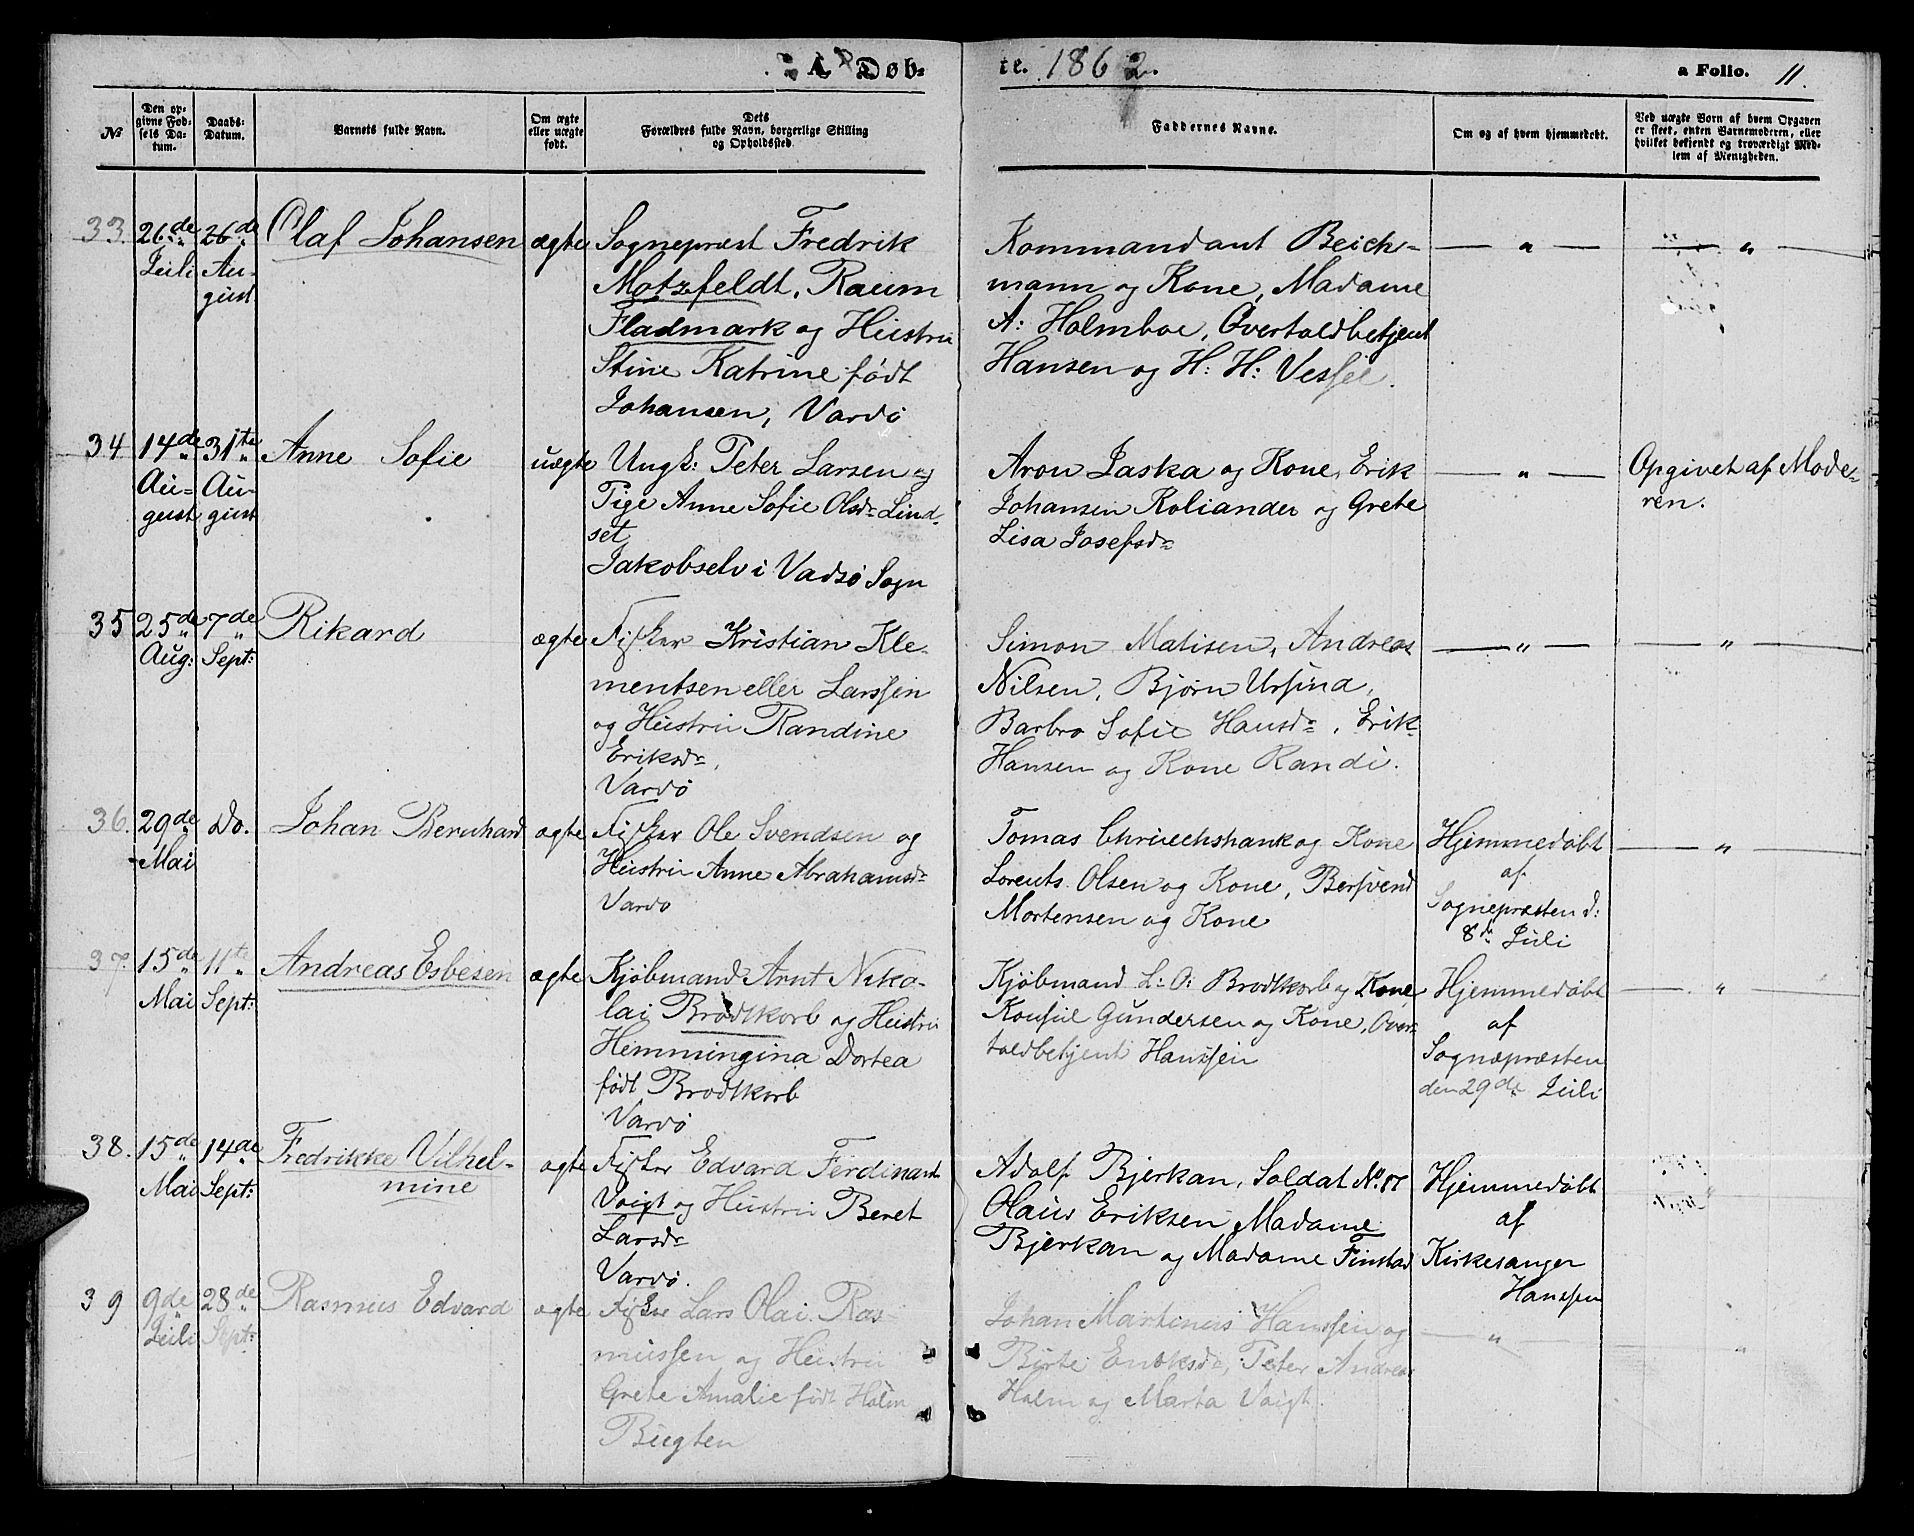 A Døb-
te. 1862.
a Folio. 11.
No
Den op-
givne Fød-
sels Da-
tum.
Daabs-
Datum.
Barnets fulde Navn.
Om ægte
eller uægte
født.
Dets
Forældres fulde Navn, borgerlige Stilling
og Opholdssted.
Faddernes Navne.
Om og af hvem hjemmedøbt.
Ved uægte Børn af hvem Opgaven
er skeet, enten Barnemoderen, eller
hvilket bekjendt og troværdigt Med-
lem af Menigheden.
33.
26de
Juli
26de
Au-
gust
Olaf Johansen
ægte
Sogneprest Fredrik
Motzfeldt, Raum
Fladmark og Hustru
Stine Katrine født
Johansen, Vardö
Kommandant Beich-
mann og Kone, Madame
A: Holmboe, Overtoldbetjent
Hansen og H: H: Vessel.
— " —
— " —
34
14de
Au-
gust
31te
Au-
gust
Anne Sofie
uægte
Ungk: Peter Larsen og
Pige Anne Sofie Olsdr Lind-
set
Jakobselv i Vadsö Sogn
Aron Laska og Kone, Erik
Johansen Roliander og Grete
Lisa Josefsdr
— " —
Opgivet af Mode-
ren.
35
25de
Aug:
7de
Sept:
Rikard
ægte
Fisker Kristian Kle-
mentsen eller Larssen
og Hustru Randine
Eriksdr,
Vardö
Simon Matisen, Andreas
Nilsen, Bjørn Ursind,
Barbro Sofie Hansdr, Erik
Hansen og Kone Randi.
— " —
— " —
36.
29de
Mai
Do.
Johan Bernhard
ægte
Fisker Ole Svendsen og
Hustru Anne Abrahamsdr
Vardö
Tomas Chruechshank og Kone
Lorents Olsen og Kone, Bersvend
Mortensen og Kone
Hjemmedöbt
af
Sognepresten d:
8de Juli
— " —
37.
15de
Mai
11te
Sept:
Andreas Esbesen
ægte
Kjøbmand Arnt Niko-
lai Brodtkorb og Hustru
Hemmingina Dortea
født Brodtkorb
Vardö
Kjøbmand L: O: Brodtkorb og Kone,
Konsul Gundersen og Kone, Over-
toldbetjent Hanssen
Hjemmedöbt
af
Sognepresten
den 29de Juli
— " —
38.
15de
Mai
14de
Sept:
Fredrikke Vilhel-
mine
ægte
Fisker Edvard Ferdinant
Voigt og Hustru Beret
Larsdr
Vardö.
Adolf Bjerkan, Soldat No. 87
Olaus Eriksen, Madame
Bjerkan og Madame Finstad
Hjemmedöbt
af
Kirkesanger
Hanssen
"
39
9de
Juli
28de
Sept:
Rasmus Edvard
ægte
Fisker Lars Olai Ras-
mussen og Hustru
Grete Amalie født Holm
Bugten
Johan Martinus Hanssen og
Birte Enoksdr, Peter Andreas
Holm og Marta Voigt.
— " —
"